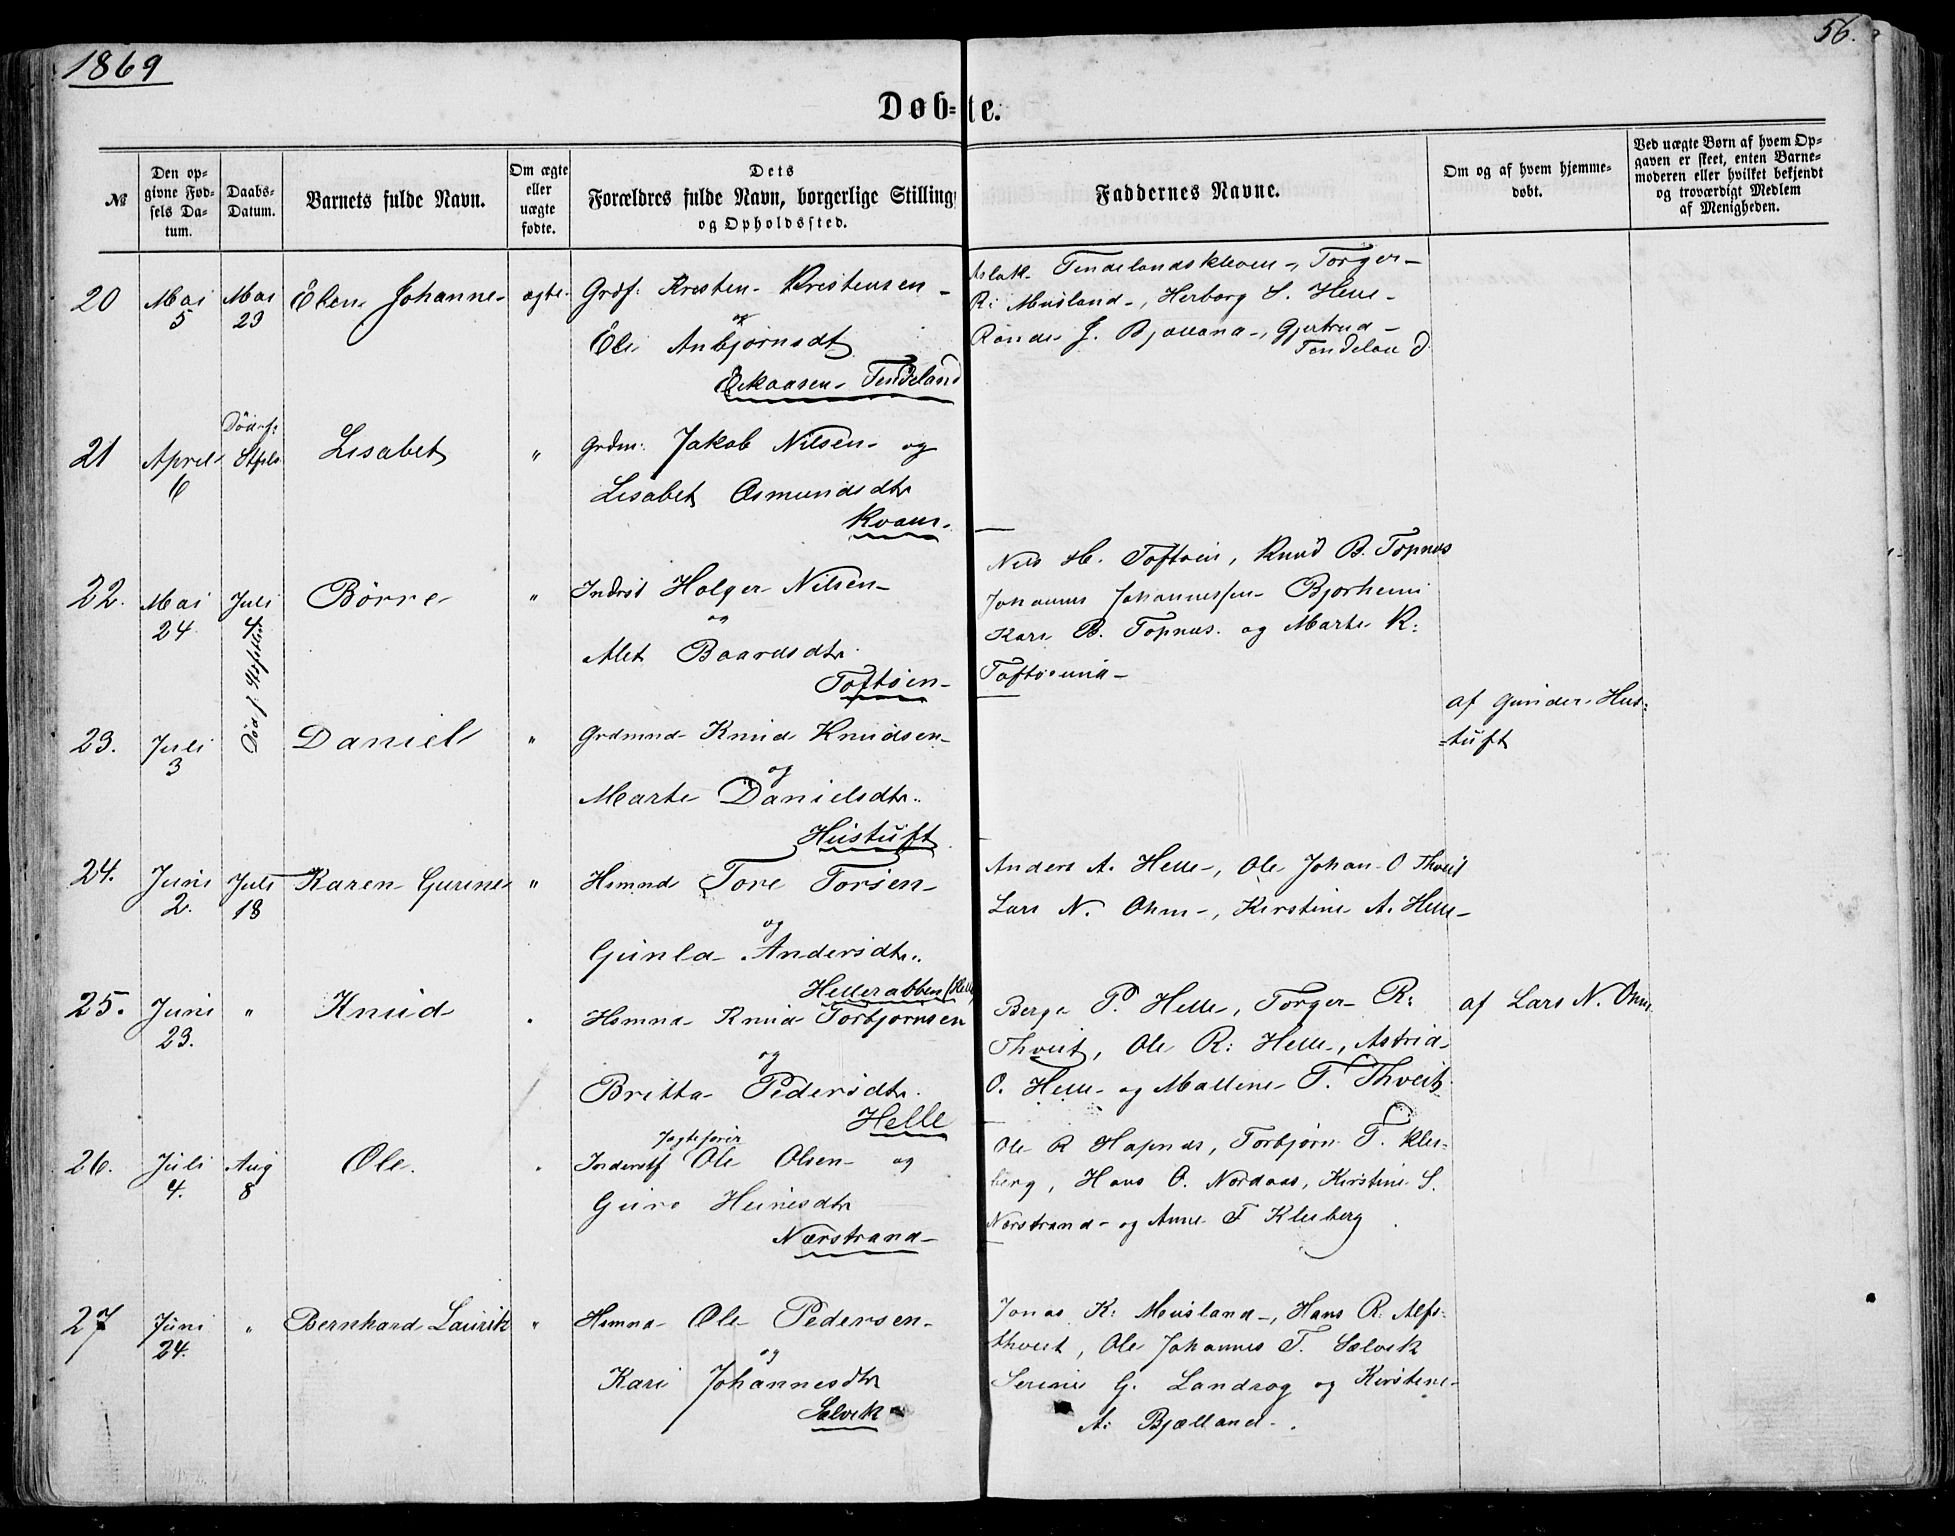 1869
56.
Døb=te.
№
Den op-
givne Fød-
sels Da-
tum.
Daabs-
Datum.
Barnets fulde Navn.
Om ægte
eller
uægte
fødte.
Dets
Forældres fulde Navn, borgerlige Stilling
og Opholdssted.
Faddernes Navne.
Om og af hvem hjemme-
døbt.
Ved uægte Børn af hvem Op-
gaven er skeet, enten Barne-
moderen eller hvilket bekjendt
og troværdigt Medlem
af Menigheden.
20 Mai 5 Mai 23 Elen Johanne ægte Kristen Kristensen
og
Eli Anbjørnsdt
Tendeland
Aslak Tendelandskleven, Torger
R: Musland, Herborg S. Helle
J. Bjelland, Gjertrud
Tendeland
21 April 6 Død f. Lisabet " Grdm: Jakob Nilsen og
Lisabet Osmundsdtr
Kvam
22. Mai 24 Juli 4 Børre " Holger Nilsen
og
Alet Baardsdtr.
Toftøen
Nils H. Toftøen, Knud B. Topnes
Johannes Johannessen Bjorheim
Kari B. Topnes og Marte K:
23. Juli 3 Død f. Daniel " Grdmnd Knud Knudsen
og
Marte Danielsdtr.
Hustuft
af Gunder Hus=
=tuft
24. Juni 2. Juli 18 Karen Gurine " Hsmnd Tore Torsen
og
Gunla Andersdtr.
Hellerabben (Helle)
Anders A. Helle, Ole Johan O Thveit
Lars N. Ohm, Kirstine A. Helle
25. Juni 23. " Knud Hsmnd Knud Torbjørnsen
og
Britta Pedersdtr.
Helle
Berge P. Helle, Torger R:
Thveit, Ole R: Helle, Astrid
O. Helle og Mallene T. Thveit
af Lars N. Ohm
26. Juli 4. Aug 8 Ole. Ole Olsen og
Guro Heinesdtr
Nærstrand
Ole R Hapnes, Torbjørn T. Kles-
berg, Hans O. Nordaas, Kirstine S.
Nærstrand og Anne T Klesberg
27 Juni 24. " Bernhard Laurik " Hsmnd Ole Pedersen
og
Kari Johannesdtr
Sælvik
Jonas K: Musland, Hans R: Alfs-
thveit, Ole Johannes T. Sælvik
Serine G. Landrog og Kirstine
A: Bjælland.